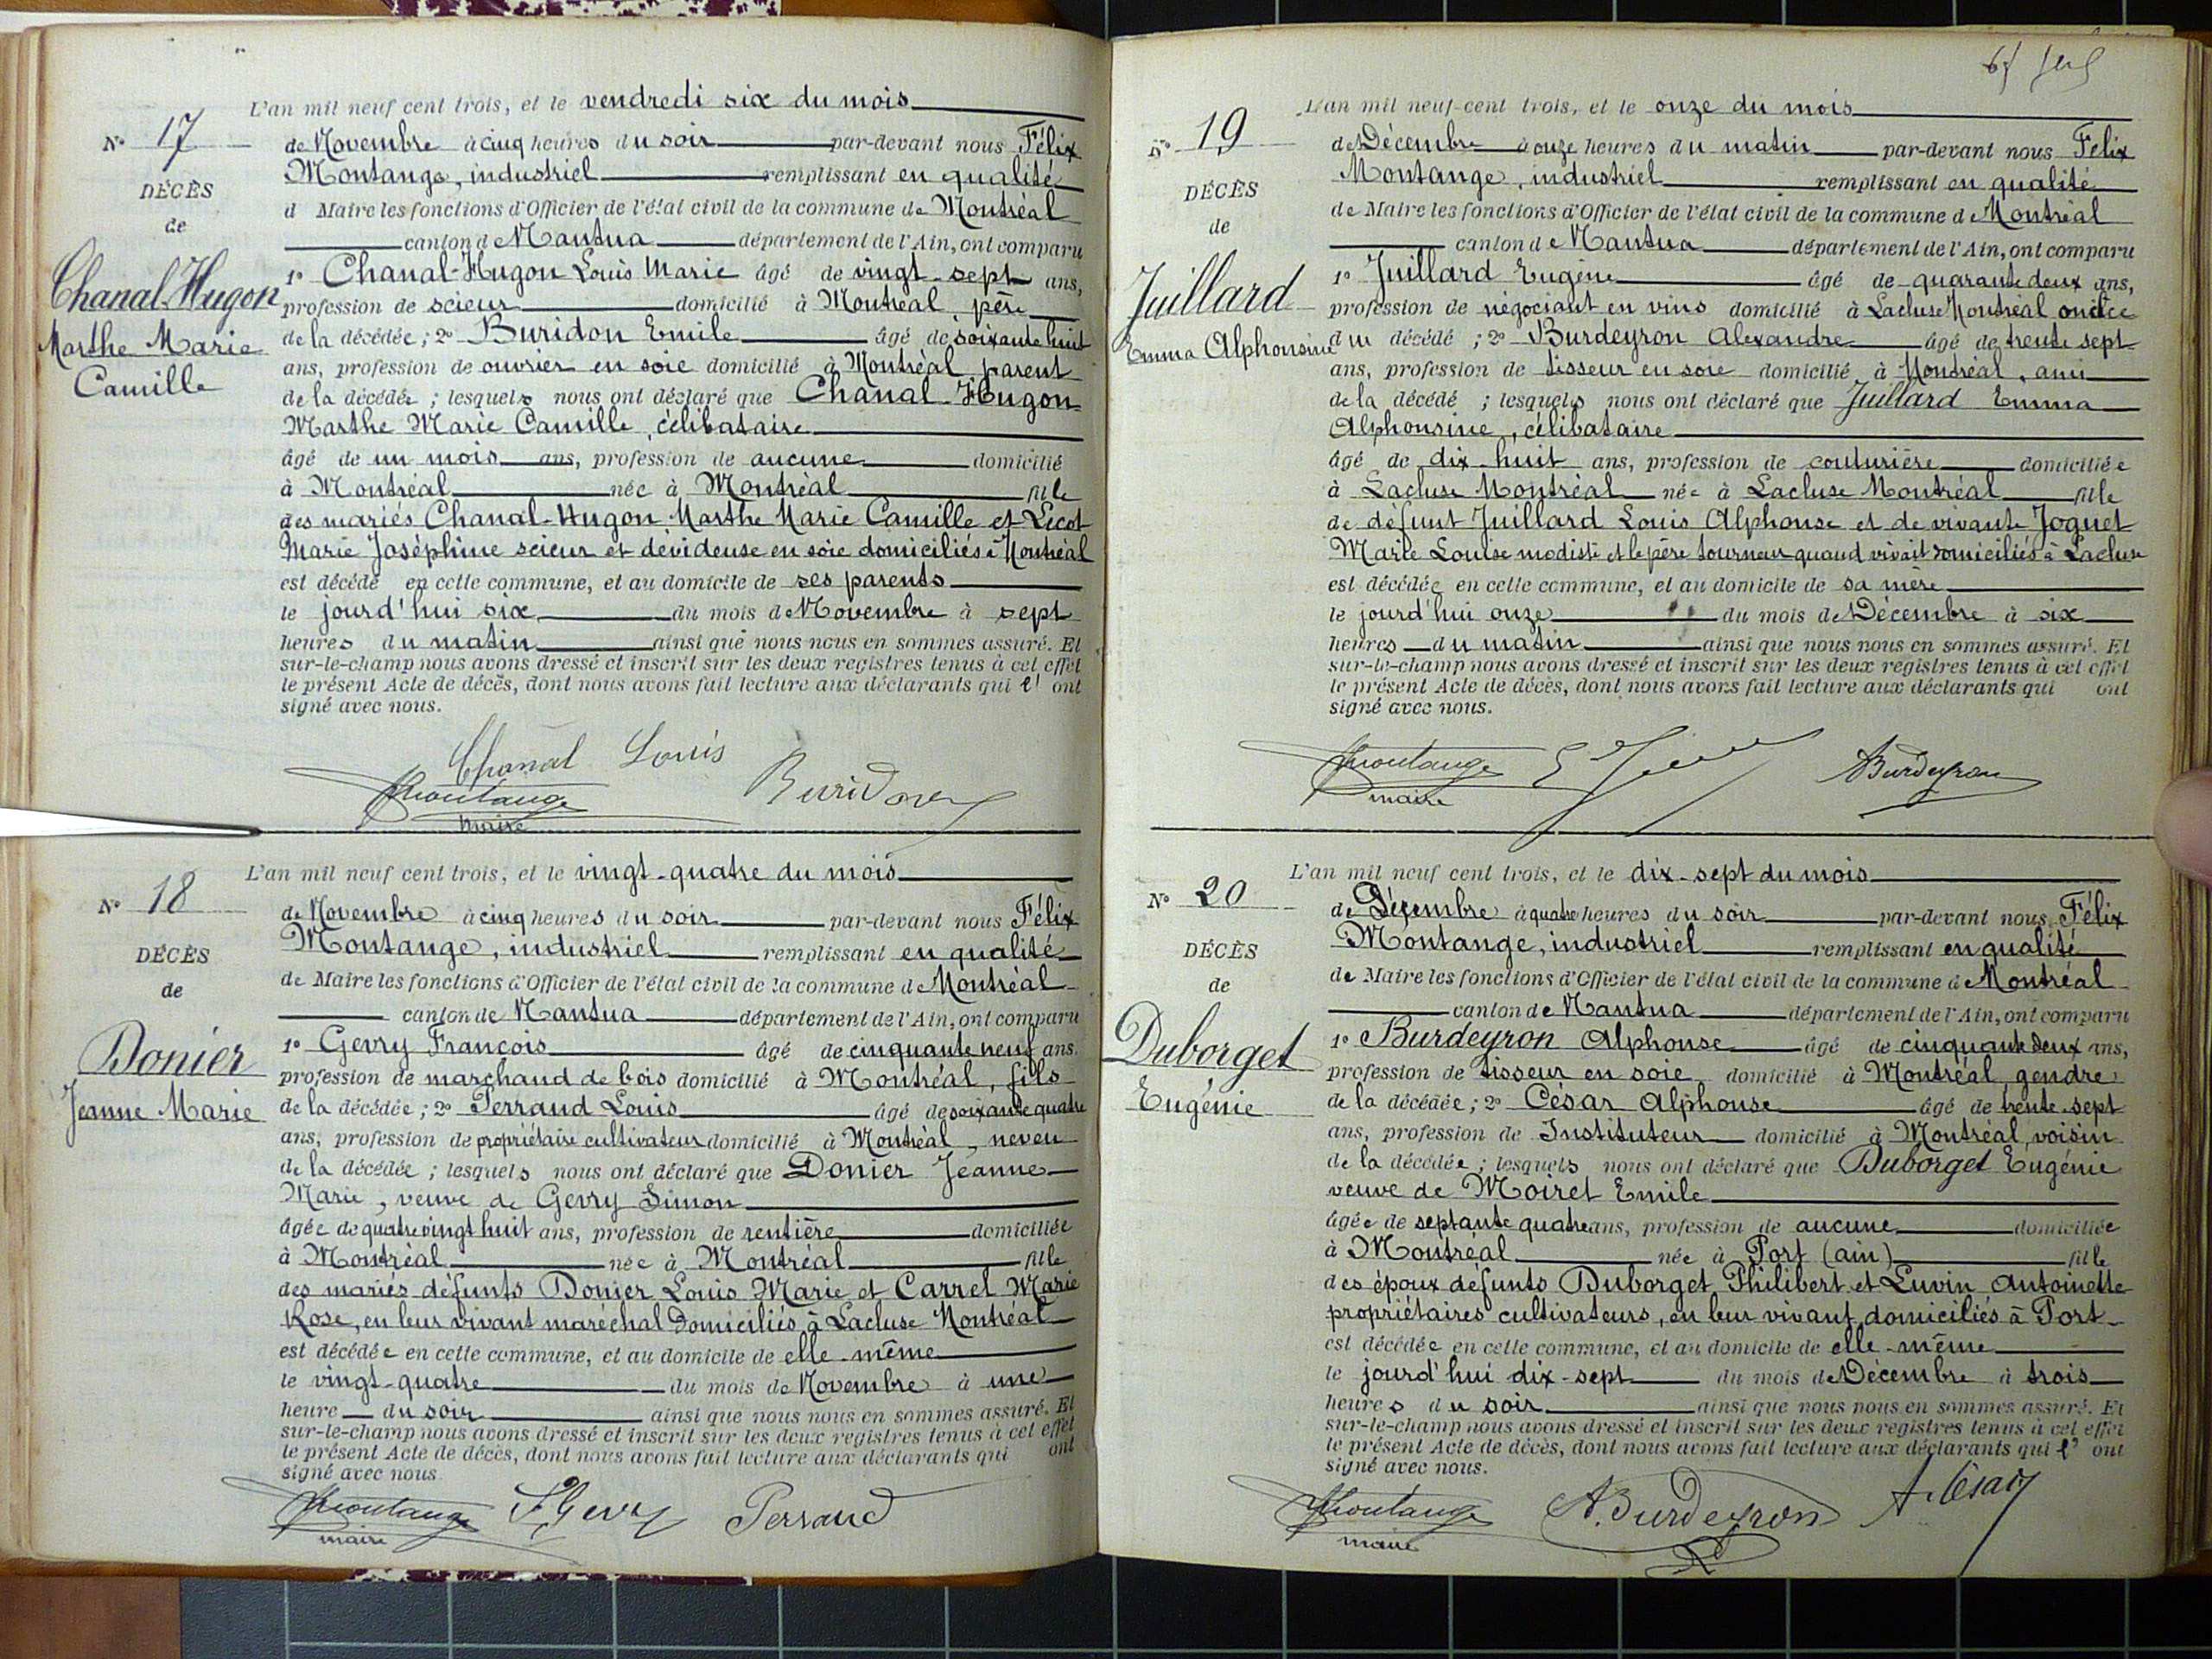 L'an mil neuf cent trois, et le vendredi six du mois
N° 17
de Novembre à cinq heures du soir par-devant nous Félix
Montange, industriel remplissant en qualité
DÉCÈS
d Maire les fonctions d'Officier de l'état civil de la commune de Montréal
de
canton de Nantua département de l'Ain, ont comparu
Chanal-Hugon
Marthe Marie
Camille
1° Chanal-Hugon Louis Marie âgé de vingt-sept ans,
profession de scieur domicilié à Montréal, père
de la décédée ; 2° Buridon Emile âgé de soixante huit
ans, profession de ouvrier en soie domicilié à Montréal, parent
de la décédée ; lesquels nous ont déclaré que Chanal-Hugon
Marthe Marie Camille, célibataire
âgé de un mois ans, profession de aucune domicilié
à Montréal née à Montréal fille
des mariés Chanal-Hugon Marthe Marie Camille et Lecot
Marie Joséphine scieur et dévideuse en soie domiciliés à Montréal
est décédé en cette commune, et au domicile de ses parents
le jourd'hui six du mois de Novembre à sept
heures du matin ainsi que nous nous en sommes assuré. Et
sur-le-champ nous avons dressé et inscrit sur les deux registres tenus à cet effet
le présent Acte de décès, dont nous avons fait lecture aux déclarants qui l' ont
signé avec nous.
Chanal Louis
Montange Buridon
maire
L'an mil neuf cent trois, et le vingt-quatre du mois
N° 18
de Novembre à cinq heures du soir par-devant nous Félix
Montange, industriel remplissant en qualité
DÉCÈS
de Maire les fonctions d'Officier de l'état civil de la commune de Montréal
de
canton de Nantua département de l'Ain, ont comparu
Donier
Jeanne Marie
1° Gevry François âgé de cinquante neuf ans.
profession de marchand de bois domicilié à Montréal, fils
de la décédée ; 2° Perraud Louis âgé de soixante quatre
ans, profession de propriétaire cultivateur domicilié à Montréal, neveu
de la décédée ; lesquels nous ont déclaré que Donier Jeanne
Marie, veuve de Gevry Simon
âgée de quatre vingt huit ans, profession de rentière domiciliée
à Montréal née à Montréal fille
des mariés défunts Donier Louis Marie et Carrel Marie
Rose, en leur vivant maréchal domiciliés à Lacluse Montréal
est décédée en cette commune, et au domicile de elle-même
le vingt-quatre du mois de Novembre à une
heure du soir ainsi que nous nous en sommes assuré. Et
sur-le-champ nous avons dressé et inscrit sur les deux registres tenus à cet effet
le présent Acte de décès, dont nous avons fait lecture aux déclarants qui ont
signé avec nous.
Montange F Gevry Perraud
maire
L'an mil neuf cent trois, et le onze du mois
N° 19
de Décembre à onze heures du matin par-devant nous Félix
Montange, industriel remplissant en qualité
DÉCÈS
de Maire les fonctions d'Officier de l'état civil de la commune de Montréal
de
canton de Nantua département de l'Ain, ont comparu
Juillard
Emma Alphonsine
1° Juillard Eugène âgé de quarante deux ans,
profession de négociant en vins domicilié à Lacluse Montréal oncle
du décédé ; 2° Burdeyron Alexandre âgé de trente sept
ans, profession de tisseur en soie domicilié à Montréal, ami
de la décédé ; lesquels nous ont déclaré que Juillard Emma
Alphonsine, célibataire
âgé de dix-huit ans, profession de couturière domiciliée
à Lacluse Montréal née à Lacluse Montréal fille
de défunt Juillard Louis Alphonse et de vivante Joguet
Marie Louise modiste et le père tourneur quand vivait domiciliés à Lacluse
est décédée en cette commune, et au domicile de sa mère
le jourd'hui onze du mois de Décembre à six
heures du matin ainsi que nous nous en sommes assuré. Et
sur-le-champ nous avons dressé et inscrit sur les deux registres tenus à cet effet
le présent Acte de décès, dont nous avons fait lecture aux déclarants qui ont
signé avec nous.
Montange ABurdeyron
maire
L'an mil neuf cent trois, et le dix-sept du mois
N° 20
de Décembre à quatre heures du soir par-devant nous Félix
Montange, industriel remplissant en qualité
DÉCÈS
de Maire les fonctions d'Officier de l'état civil de la commune de Montréal
de
canton de Nantua département de l'Ain, ont comparu
Duborget
Eugénie
1° Burdeyron Alphonse âgé de cinquante deux ans,
profession de tisseur en soie domicilié à Montréal, gendre
de la décédée ; 2° César Alphonse âgé de trente-sept
ans, profession de Instituteur domicilié à Montréal, voisin
de la décédée ; lesquels nous ont déclaré que Duborget Eugénie
veuve de Moiret Emile
âgée de septante quatre ans, profession de aucune domiciliée
à Montréal née à Port (ain) fille
des époux défunts Duborget Philibert et Luvin Antoinette
propriétaires cultivateurs, en leur vivant domiciliés à Port
est décédée en cette commune, et au domicile de elle-même
le jourd'hui dix-sept du mois de Décembre à trois
heures du soir ainsi que nous nous en sommes assuré. Et
sur-le-champ nous avons dressé et inscrit sur les deux registres tenus à cet effet
le présent Acte de décès, dont nous avons fait lecture aux déclarants qui l' ont
signé avec nous.
Montange A. Burdeyron A César
maire